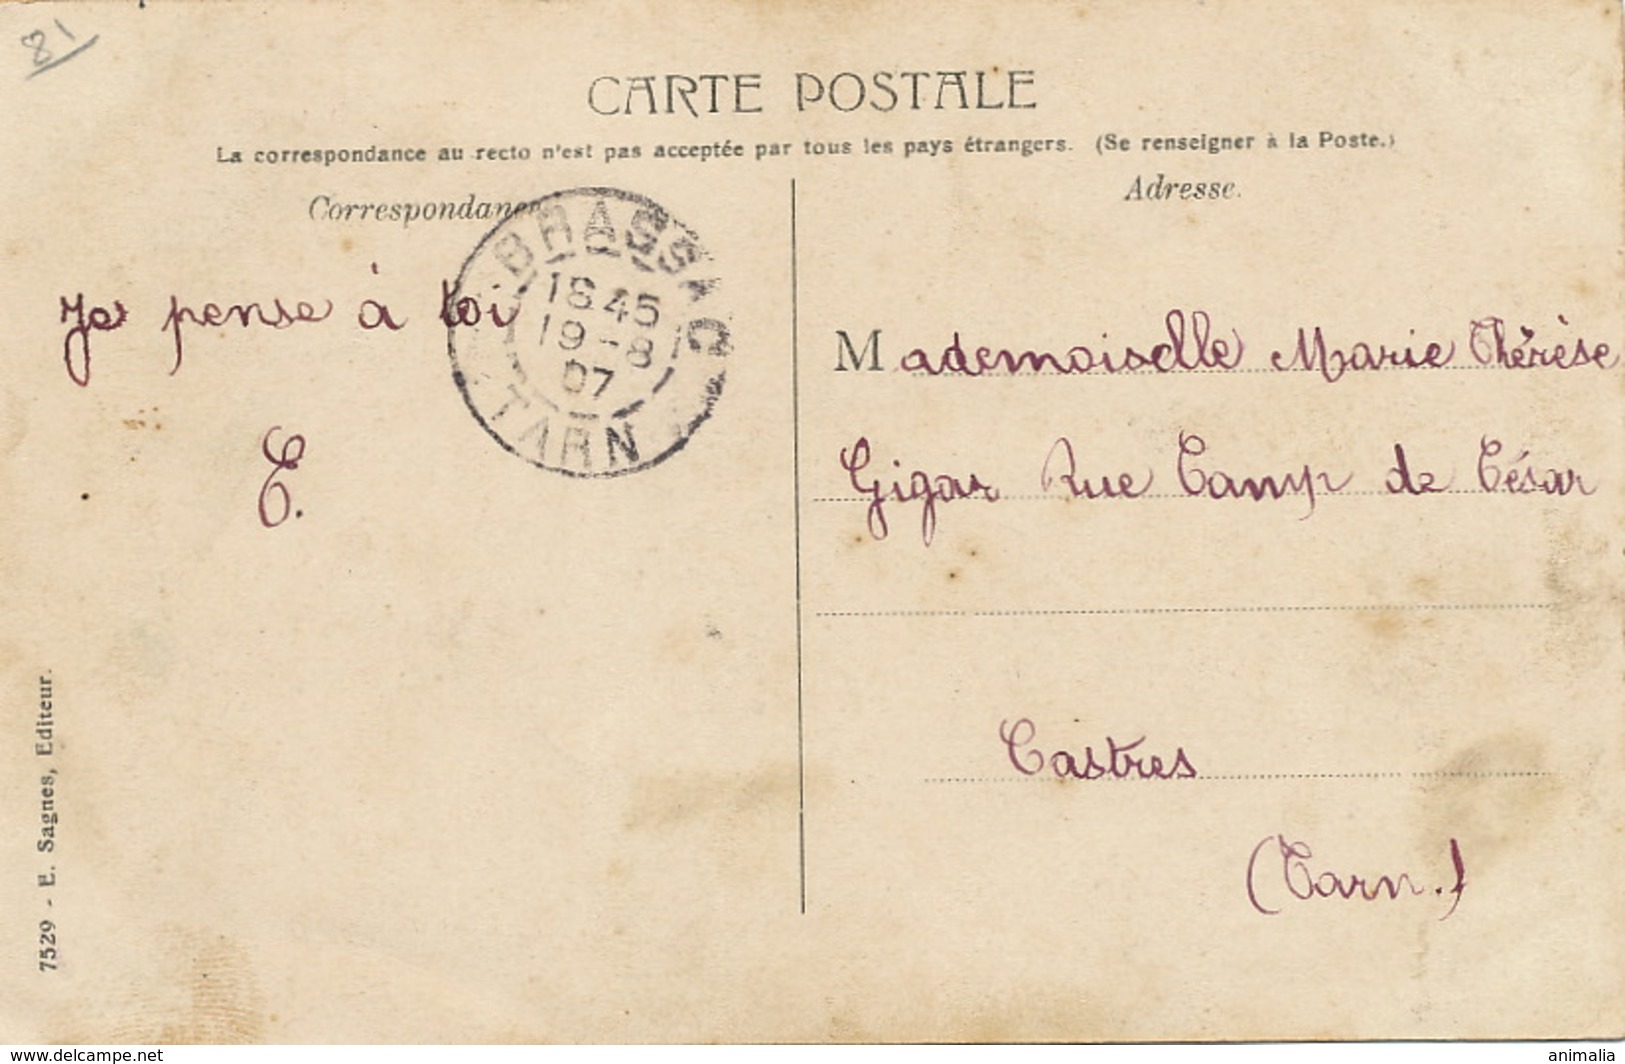 81
CARTE POSTALE
La correspondance au recto n'est pas acceptée par tous les pays étrangers. (Se renseigner à la Poste.)
Correspondance
Adresse.
BRASSAC
18 45
19 - 8
07
TARN
Je pense à toi
E.
Mademoiselle Marie Thérèse
Gigar Rue Camp de César
Castres
(Tarn.)
7529 - E. Sagnes, Editeur.
www.delcampe.net
animalia